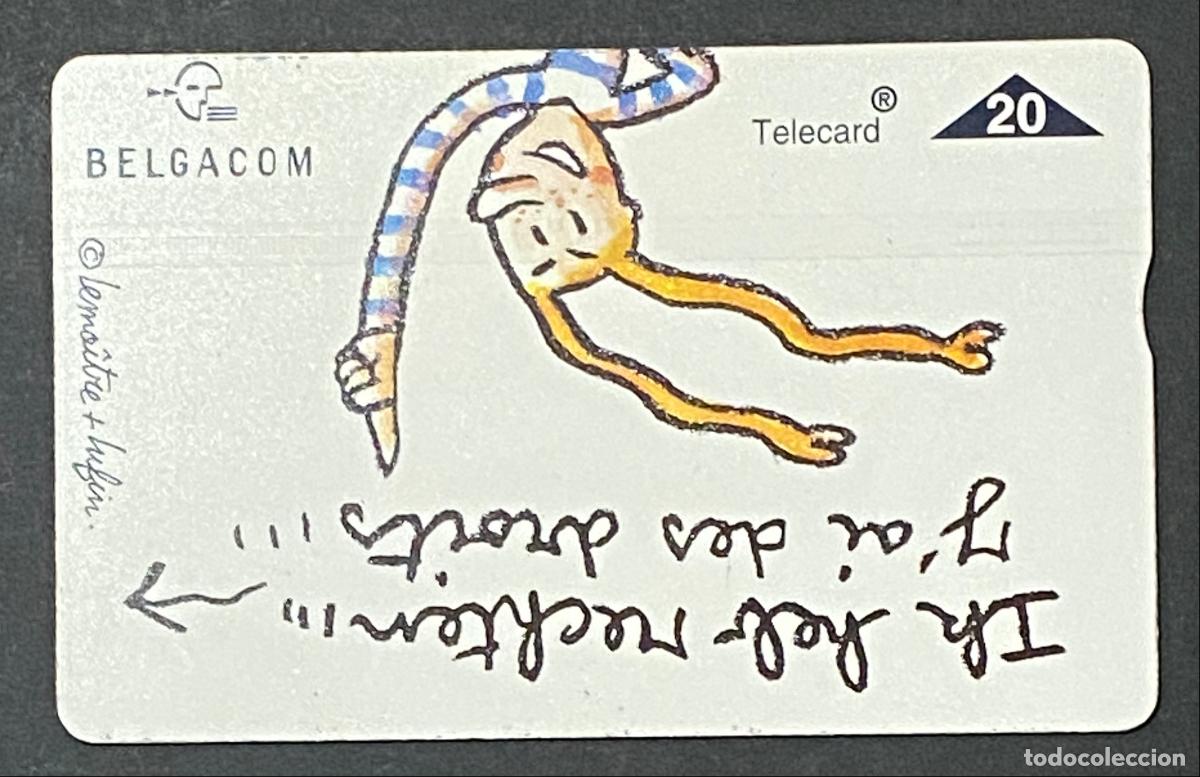 BELGACOM
Telecard®
20
© lemaître + lufin.
Ik heb rechten...
J'ai des droits...
todocoleccion